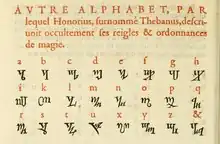 AVTRE ALPHABET, PAR
lequel Honorius, surnommé Thebanus, descri-
uoit occultement ses reigles & ordonnances
de magie.
a b c d e f g h
i k l m n o p q
r s t u x y z &